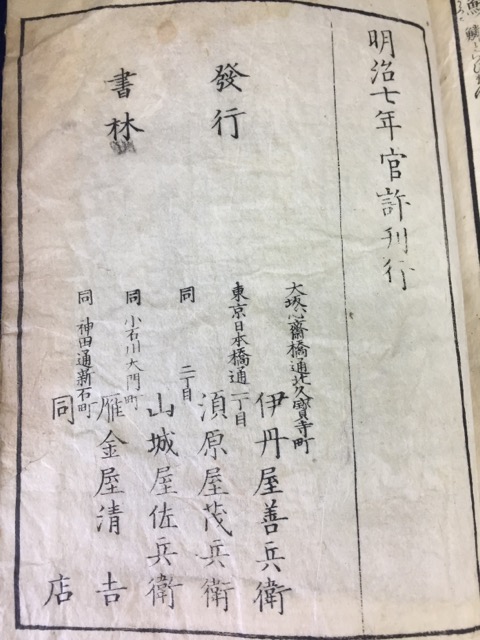 明治七年官許刊行
發行
書林
大坂心齋橋通北久寶寺町
伊丹屋善兵衛
東京日本橋通一丁目
須原屋茂兵衛
同 二丁目
山城屋佐兵衛
同 小石川大門町
雁金屋清吉
同 神田通新石町
同店